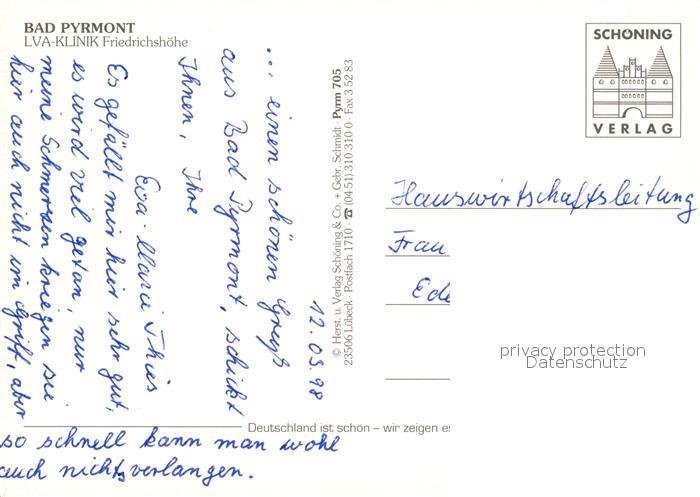 BAD PYRMONT
LVA-KLINIK Friedrichshöhe
12.05.98
... einen schönen Gruß
aus Bad Pyrmont, schickt
Ihnen, Ihre
Eva-Marie Thies
Es gefällt mir hier sehr gut,
es wird viel getan, nur
meine Schmerzen kriegen sie
hier auch nicht im Griff, aber
so schnell kann man wohl
auch nichts verlangen.
© Herst. u. Verlag Schöning & Co. + Gebr. Schmidt · Pyrm 705
23506 Lübeck · Postfach 1710 · ☎ (04 51) 310 310 0 · Fax 3 52 83
Deutschland ist schön – wir zeigen es
SCHÖNING
VERLAG
Hauswirtschaftsleitung
Frau
privacy protection
Datenschutz